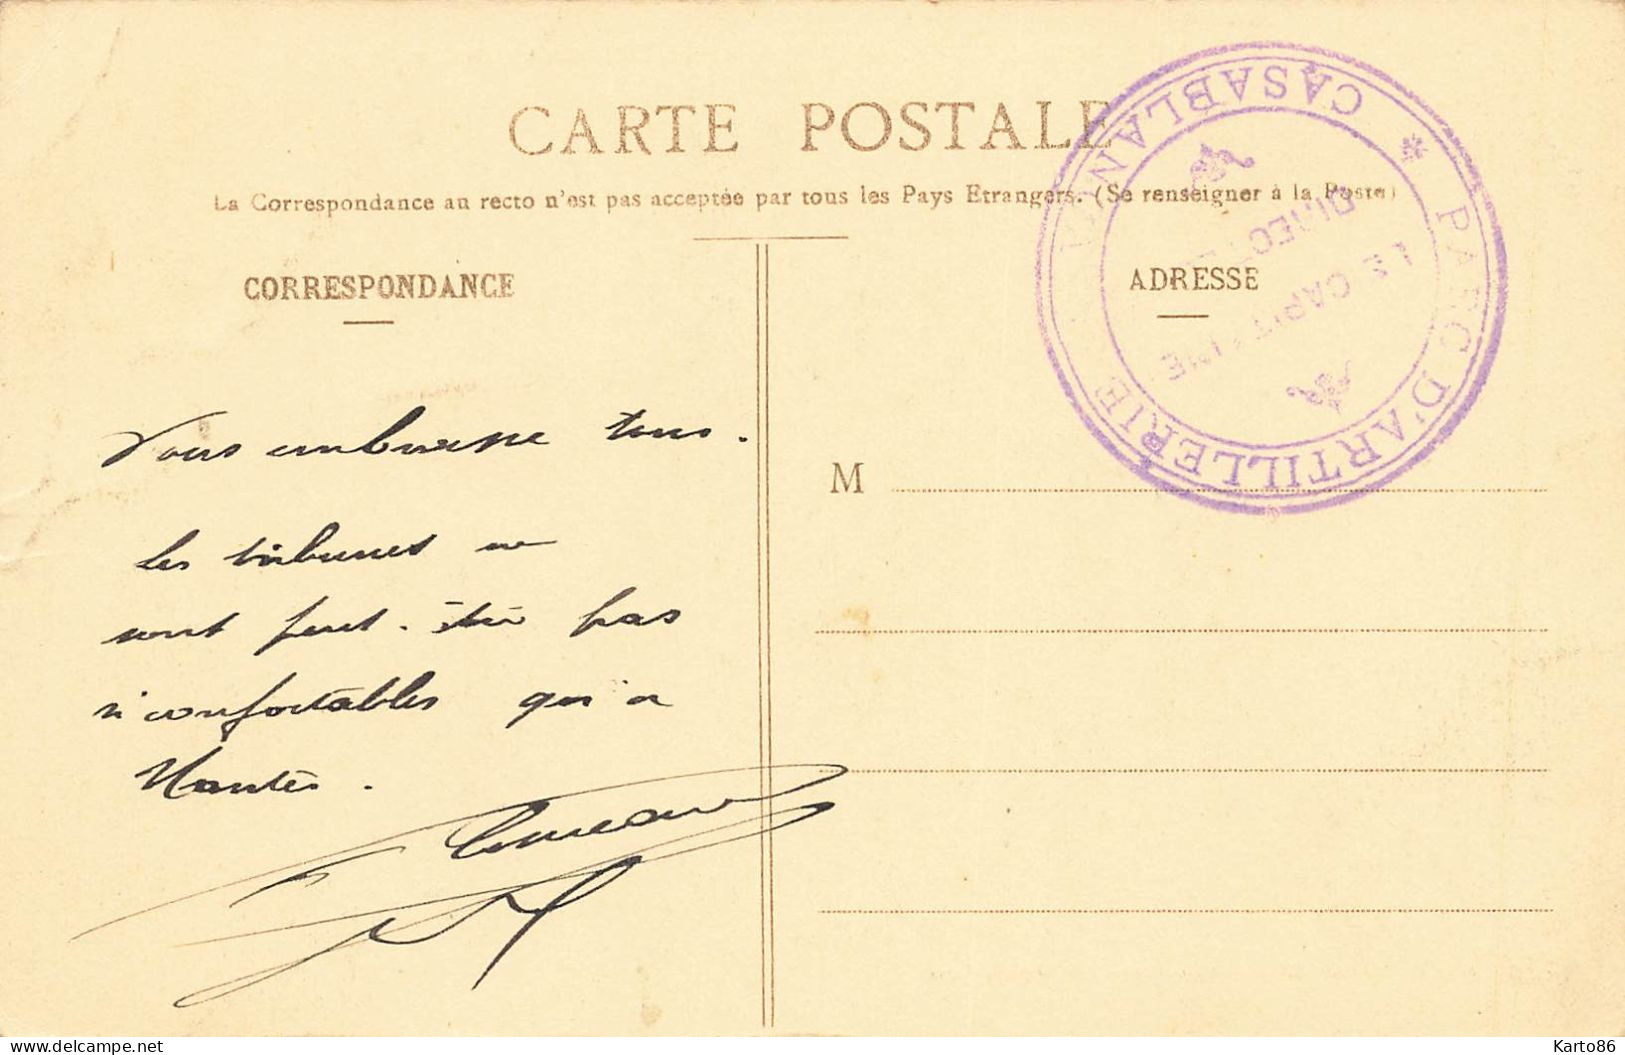 CARTE POSTALE
La Correspondance au recto n'est pas acceptée par tous les Pays Etrangers. (Se renseigner à la Poste)
CORRESPONDANCE
ADRESSE
PARC D'ARTILLERIE
* CASABLANCA
LE CAPITAINE
DIRECTEUR
Vous embrasse tous.
M
les tribunes ne
sont peut-être pas
si confortables qu'a
Nantes.
delcampe.net
Karto86